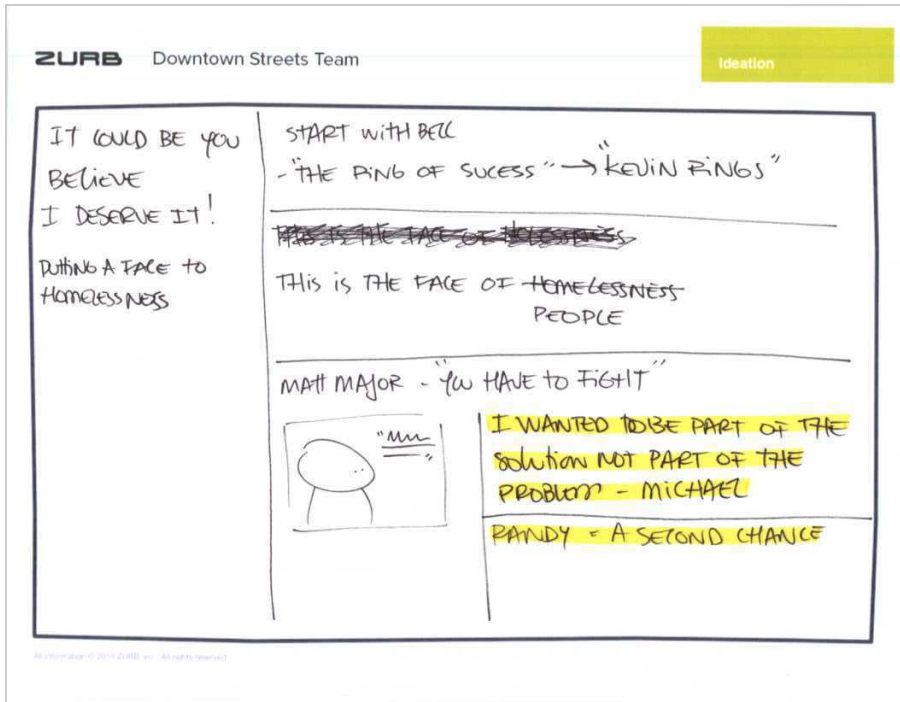 ZURB Downtown Streets Team
Ideation
IT COULD BE YOU
BELIEVE
I DESERVE IT!
PUTTING A FACE TO
HOMELESSNESS
START WITH BELL
- "THE RING OF SUCESS" → "KEVIN RINGS"
THIS IS THE FACE OF HOMELESSNESS
PEOPLE
MATT MAJOR - "YOU HAVE TO FIGHT"
I WANTED TO BE PART OF THE
SOLUTION NOT PART OF THE
PROBLEM - MICHAEL
RANDY - A SECOND CHANCE
All information © ZURB, inc. All rights reserved